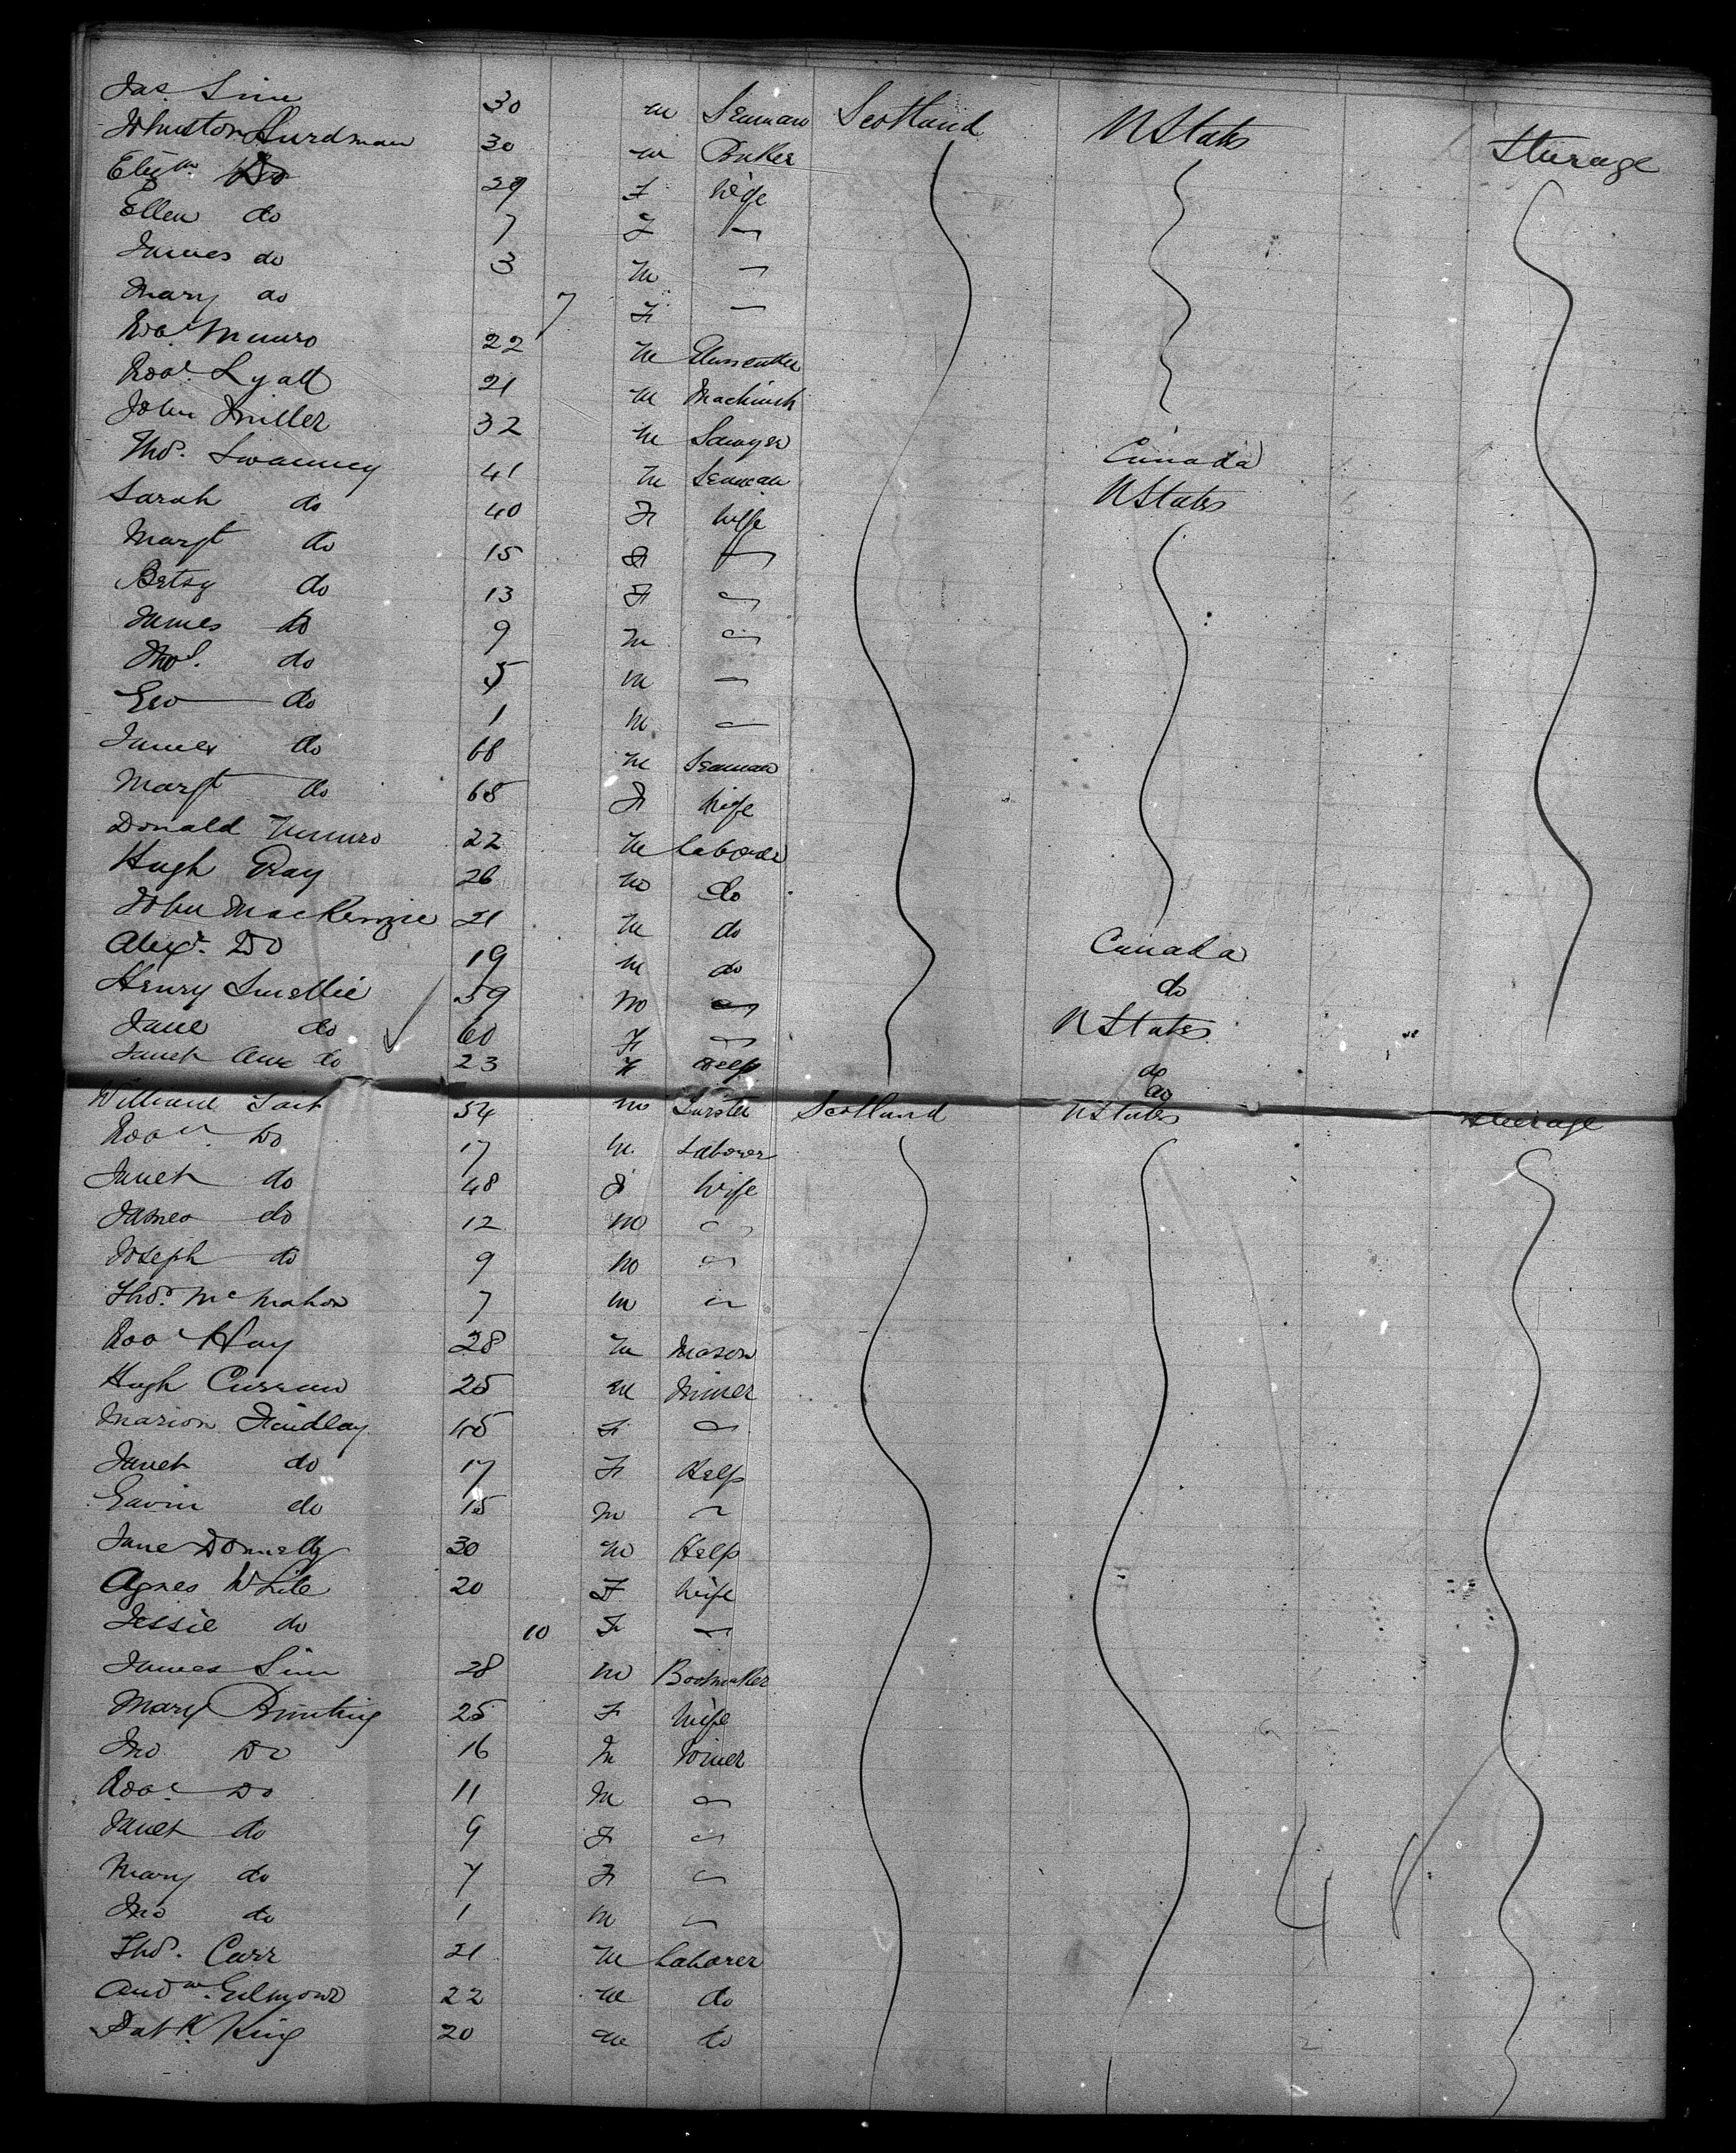 Jas. Sim 30 m Seaman Scotland U States Sturage
Johnston Hurdman 30 m Baker
Elizth. Do 29 F Wife
Ellen do 7 F
James do 3 m
Mary do 7 F
Robt. Munro 22 m
Robt. Lyall 21 m Machinist
John Miller 32 m Sawyer Canada
Thos. Swanney 41 m Seaman U States
Sarah do 40 F Wife
Margt do 15 F
Betsy do 13 F
James do 9 m
Thos. do 5 m
Geo do 1 m
James do 68 m Seaman
Margt do 65 F Wife
Donald Munro 22 m Laborer
Hugh Gray 26 m do
John MacKenzie 21 m do Canada
Alexr. Do 19 m do do
Henry Smellie 59 m U States
Jane do 60 F do
Janet Ann do 23 F Help do
William Tait 54 m Scotland U States Steerage
Robt. Do 17 m Laborer
Janet do 48 F Wife
James do 12 m
Joseph do 9 m
Thos. McMahon 7 m
Robt Hay 28 m Mason
Hugh Curran 25 m Miner
Marion Findlay F
Janet do 17 F Help
Gavin do 15 m
Jane Donnelly 30 m Help
Agnes White 20 F Wife
Jessie do 10 F
James Sim 28 m Bootmaker
Mary Bunting 25 F Wife
Jno Do 16 m
Robt. Do 11 m
Janet do 9 F
Mary do 7 F
Jno do 1 m
Thos. Carr 21 m Laborer
Andw. Gilmour 22 m do
Patk. King 20 m do